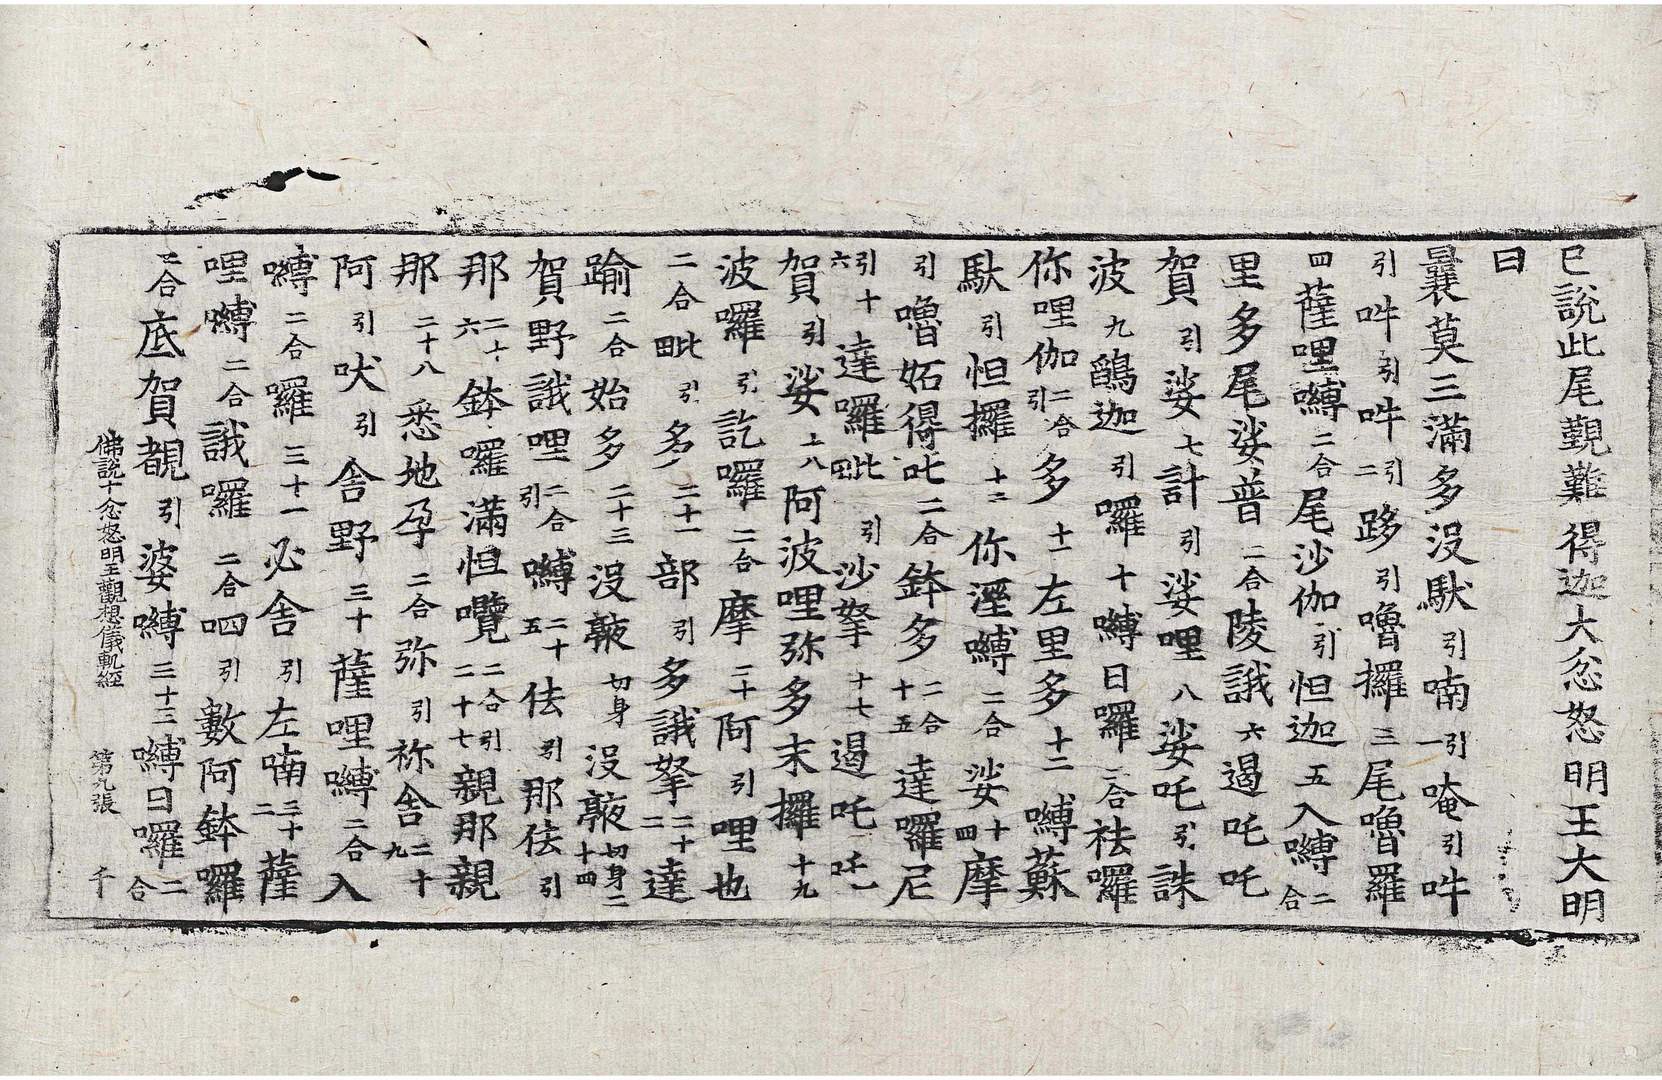 已說此尾覲難得迦大忿怒明王大明
曰
曩莫三滿多沒馱引喃引一唵引吽
引吽引吽引二跢引嚕攞三尾嚕羅
四薩哩嚩二合尾沙伽引怛迦五入嚩二合
里多尾娑普二合陵誐六遏吒吒
賀引娑七計引娑哩八娑吒引誅
波九鶻迦引囉十嚩日囉二合祛囉
你哩伽二合引多十一左里多十二嚩蘇
馱引怛攞十三你溼嚩二合娑十四摩
引嚕妬得叱二合鉢多二合十五達囉尼
引十六達囉此四引沙拏十七遏吒吒一
賀引娑十八阿波哩弥多末攞十九
波囉引訖囉二合摩二十阿引哩也
二合此四引多二十一部引多誐拏二十二達
踰二合始多二十三沒𣣋切身沒𣣋切身二十四
賀野誐哩二合引嚩二十五佉引那佉引
那二十六鉢囉滿怛囕二合引二十七親那親
那二十八悉地孕二合弥引祢舍二十九
阿引吠引舍野三十薩哩嚩二合入
嚩二合囉三十一必舍引左喃三十二薩
哩嚩二合誐囉二合呬引數阿鉢囉
二合底賀覩引婆嚩三十三嚩日囉二合
佛說十忿怒明王觀想儀軌經 第九張 千